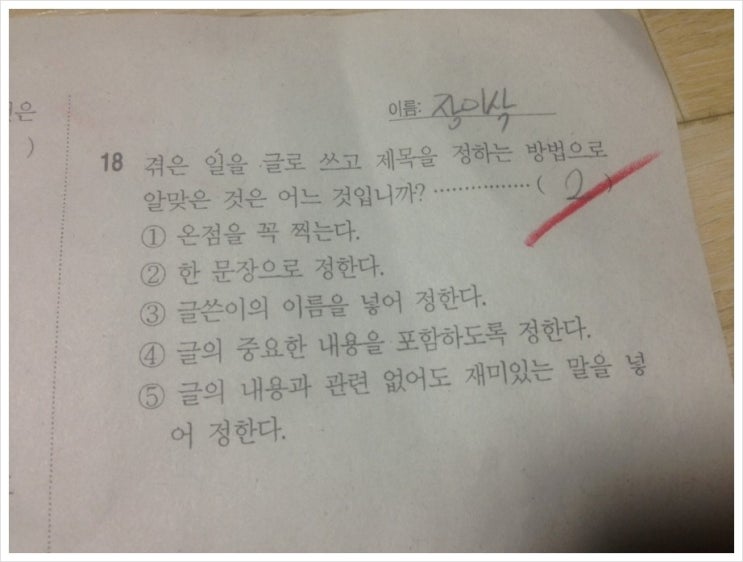 이름: 장이삭
)
18 겪은 일을 글로 쓰고 제목을 정하는 방법으로
알맞은 것은 어느 것입니까? ················ ( 2 )
① 온점을 꼭 찍는다.
② 한 문장으로 정한다.
③ 글쓴이의 이름을 넣어 정한다.
④ 글의 중요한 내용을 포함하도록 정한다.
⑤ 글의 내용과 관련 없어도 재미있는 말을 넣
어 정한다.